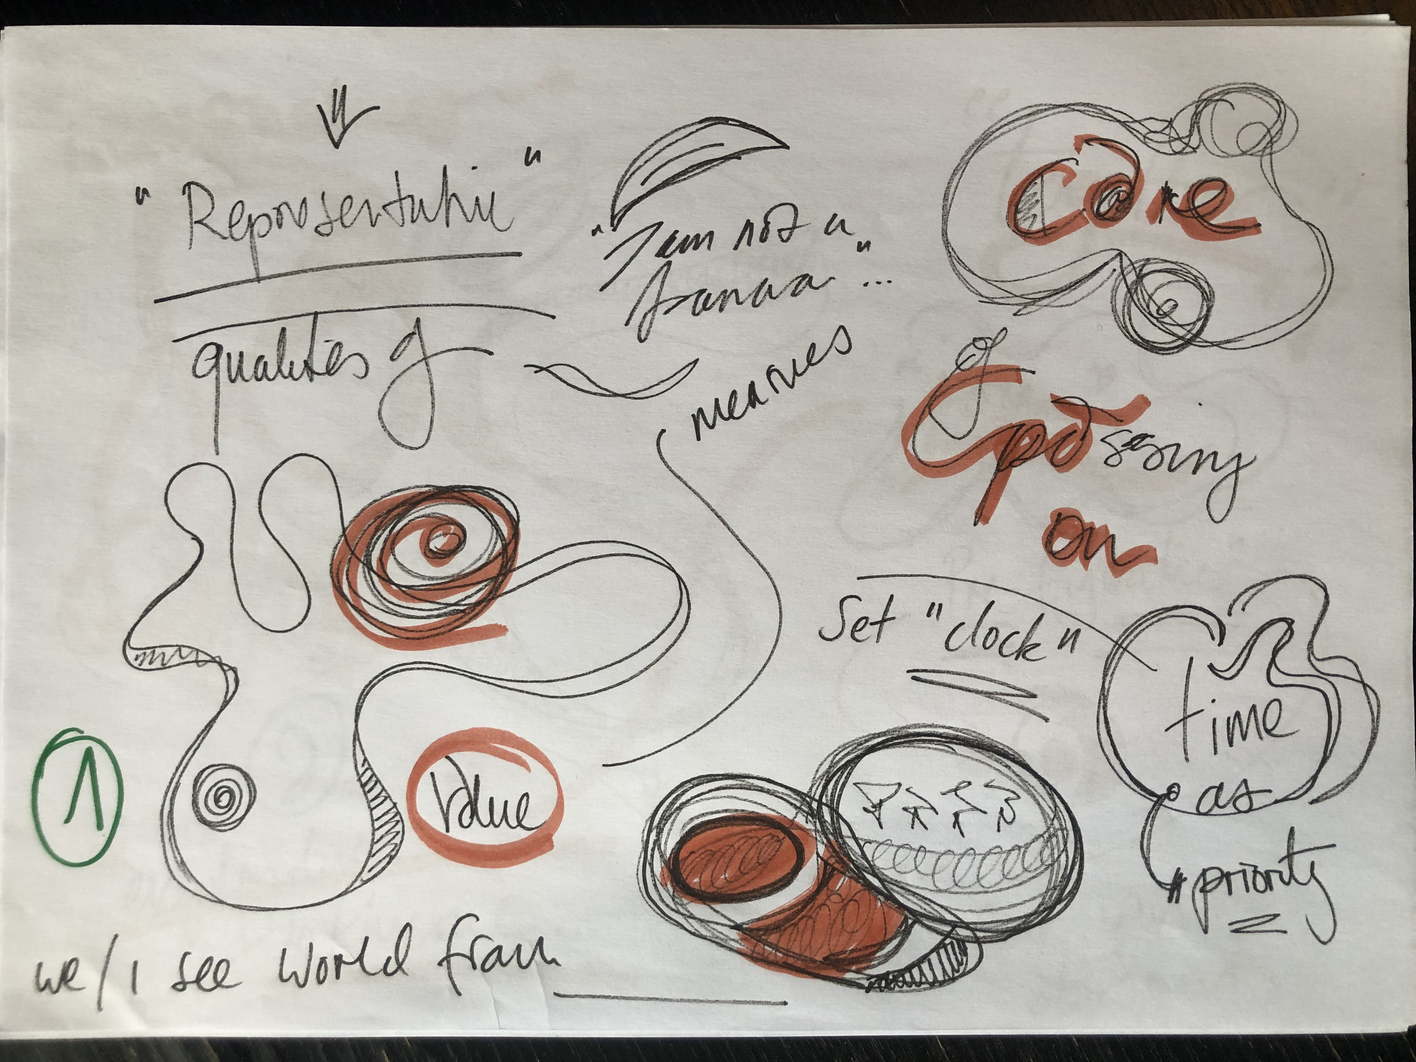 "Representative"
qualities of
"I am not a
banana" ...
Care
of
passing
on
Set "clock"
time
as
#priority
1
Value
we/I see World from